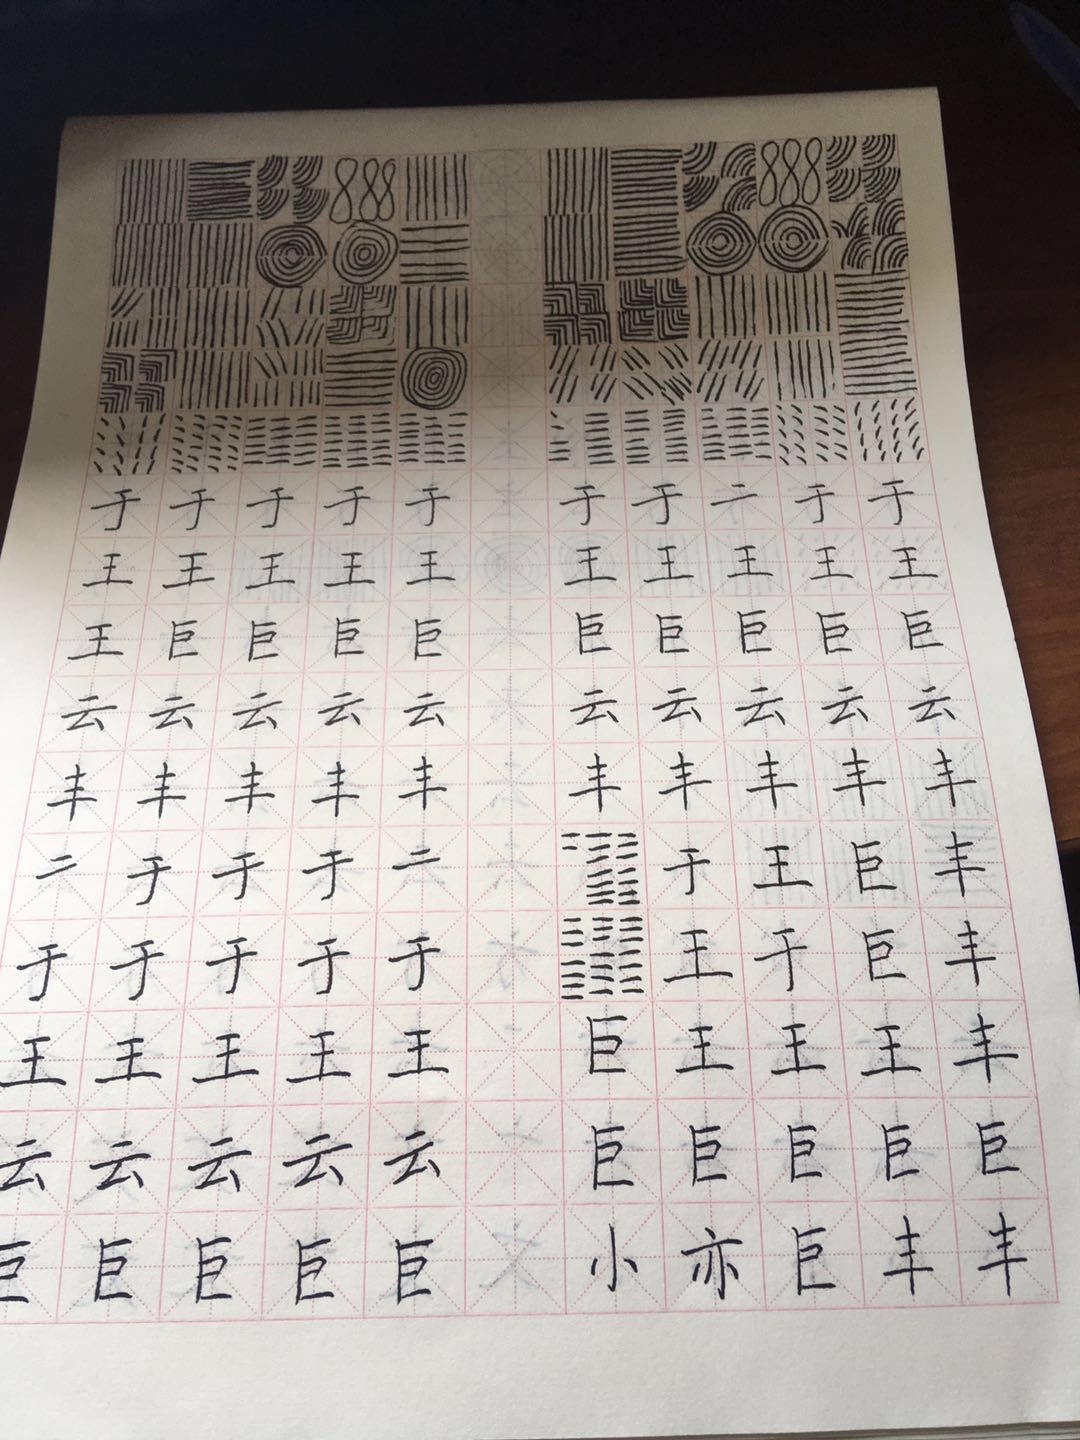 于于于于于于于二于于
王王王王王王王王王王
王巨巨巨巨巨巨巨巨巨
云云云云云云云云云云
丰丰丰丰丰丰丰丰丰丰
二于于于二于王巨丰
于于于于于王干巨丰
王王王王王巨王王王丰
云云云云云巨巨巨巨巨
巨巨巨巨巨小亦巨丰丰